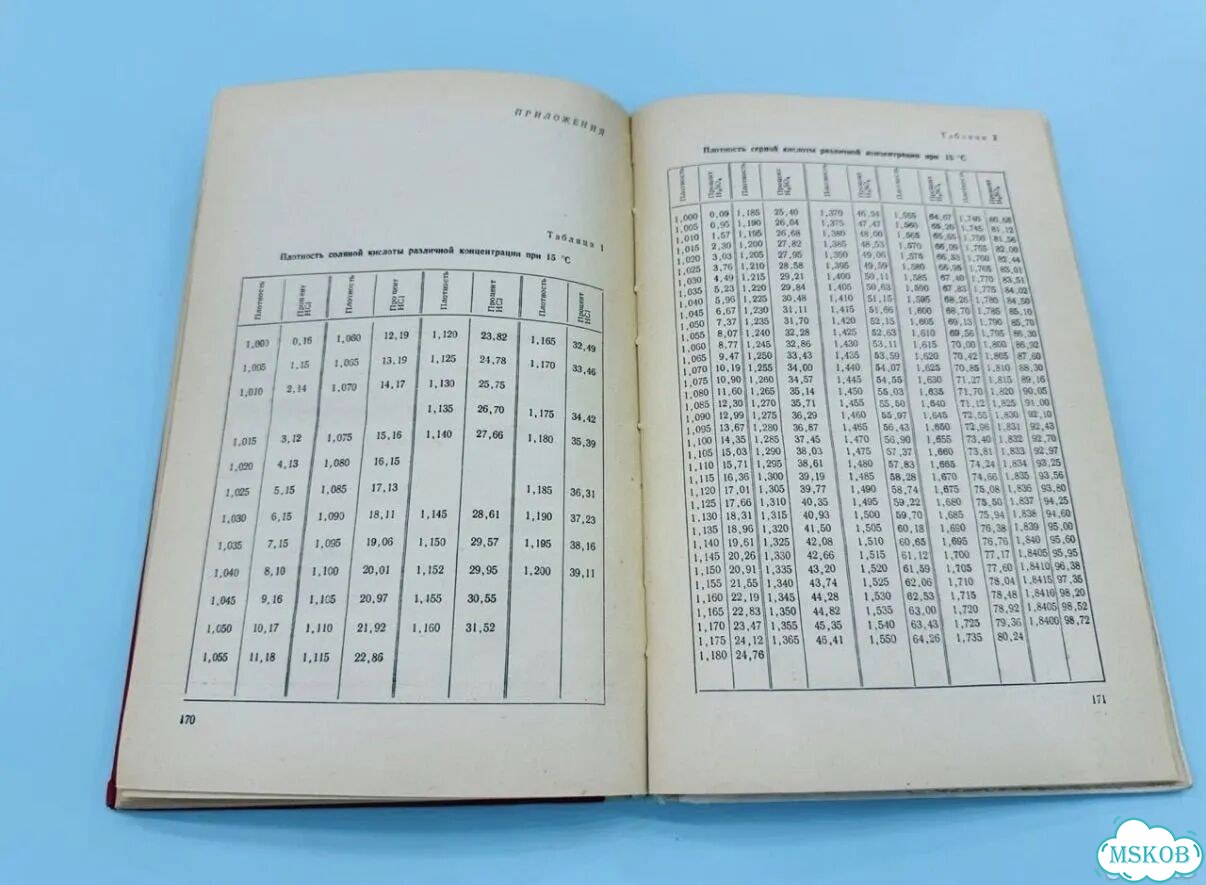 ПРИЛОЖЕНИЯ
Таблица 1
Плотность соляной кислоты различной концентрации при 15 °С
Плотность Процент HCl Плотность Процент HCl Плотность Процент HCl Плотность Процент HCl
1,000 0,16 1,060 12,19 1,120 23,82 1,165 32,49
1,005 1,15 1,065 13,19 1,125 24,78 1,170 33,46
1,010 2,14 1,070 14,17 1,130 25,75
1,135 26,70 1,175 34,42
1,015 3,12 1,075 15,16 1,140 27,66 1,180 35,39
1,020 4,13 1,080 16,15
1,025 5,15 1,085 17,13 1,185 36,31
1,030 6,15 1,090 18,11 1,145 28,61 1,190 37,23
1,035 7,15 1,095 19,06 1,150 29,57 1,195 38,16
1,040 8,10 1,100 20,01 1,152 29,95 1,200 39,11
1,045 9,16 1,105 20,97 1,155 30,55
1,050 10,17 1,110 21,92 1,160 31,52
1,055 11,18 1,115 22,86
170
Таблица 2
Плотность серной кислоты различной концентрации при 15 °С
Плотность Процент H₂SO₄ Плотность Процент H₂SO₄ Плотность Процент H₂SO₄ Плотность Процент H₂SO₄ Плотность Процент H₂SO₄
1,000 0,09 1,185 25,40 1,370 46,94 1,555 64,67 1,740 80,68
1,005 0,95 1,190 26,04 1,375 47,47 1,560 65,20 1,745 81,12
1,010 1,57 1,195 26,68 1,380 48,00 1,565 65,65 1,750 81,56
1,015 2,30 1,200 27,32 1,385 48,53 1,570 66,09 1,755 82,00
1,020 3,03 1,205 27,95 1,390 49,06 1,575 66,53 1,760 82,44
1,025 3,76 1,210 28,58 1,395 49,59 1,580 66,95 1,765 83,01
1,030 4,49 1,215 29,21 1,400 50,11 1,585 67,40 1,770 83,51
1,035 5,23 1,220 29,84 1,405 50,63 1,590 67,83 1,775 84,02
1,040 5,96 1,225 30,48 1,410 51,15 1,595 68,26 1,780 84,50
1,045 6,67 1,230 31,11 1,415 51,66 1,600 68,70 1,785 85,10
1,050 7,37 1,235 31,70 1,420 52,15 1,605 69,13 1,790 85,70
1,055 8,07 1,240 32,28 1,425 52,63 1,610 69,56 1,795 86,30
1,060 8,77 1,245 32,86 1,430 53,11 1,615 70,00 1,800 86,92
1,065 9,47 1,250 33,43 1,435 53,59 1,620 70,42 1,805 87,60
1,070 10,19 1,255 34,00 1,440 54,07 1,625 70,85 1,810 88,30
1,075 10,90 1,260 34,57 1,445 54,55 1,630 71,27 1,815 89,16
1,080 11,60 1,265 35,14 1,450 55,03 1,635 71,70 1,820 90,05
1,085 12,30 1,270 35,71 1,455 55,50 1,640 71,12 1,825 91,00
1,090 12,99 1,275 36,29 1,460 55,97 1,645 72,55 1,830 92,10
1,095 13,67 1,280 36,87 1,465 56,43 1,650 72,96 1,831 92,43
1,100 14,35 1,285 37,45 1,470 56,90 1,655 73,40 1,832 92,70
1,105 15,03 1,290 38,03 1,475 57,37 1,660 73,81 1,833 92,97
1,110 15,71 1,295 38,61 1,480 57,83 1,665 74,24 1,834 93,25
1,115 16,36 1,300 39,19 1,485 58,28 1,670 74,66 1,835 93,56
1,120 17,01 1,305 39,77 1,490 58,74 1,675 75,08 1,836 93,80
1,125 17,66 1,310 40,35 1,495 59,22 1,680 75,50 1,837 94,25
1,130 18,31 1,315 40,93 1,500 59,70 1,685 75,94 1,838 94,60
1,135 18,96 1,320 41,50 1,505 60,18 1,690 76,38 1,839 95,00
1,140 19,61 1,325 42,08 1,510 60,65 1,695 76,76 1,840 95,60
1,145 20,26 1,330 42,66 1,515 61,12 1,700 77,17 1,8405 95,95
1,150 20,91 1,335 43,20 1,520 61,59 1,705 77,60 1,8410 96,38
1,155 21,55 1,340 43,74 1,525 62,06 1,710 78,04 1,8415 97,35
1,160 22,19 1,345 44,28 1,530 62,53 1,715 78,48 1,8410 98,20
1,165 22,83 1,350 44,82 1,535 63,00 1,720 78,92 1,8405 98,52
1,170 23,47 1,355 45,35 1,540 63,43 1,725 79,36 1,8400 98,72
1,175 24,12 1,365 46,41 1,550 64,26 1,735 80,24
1,180 24,76
171
MSKOB